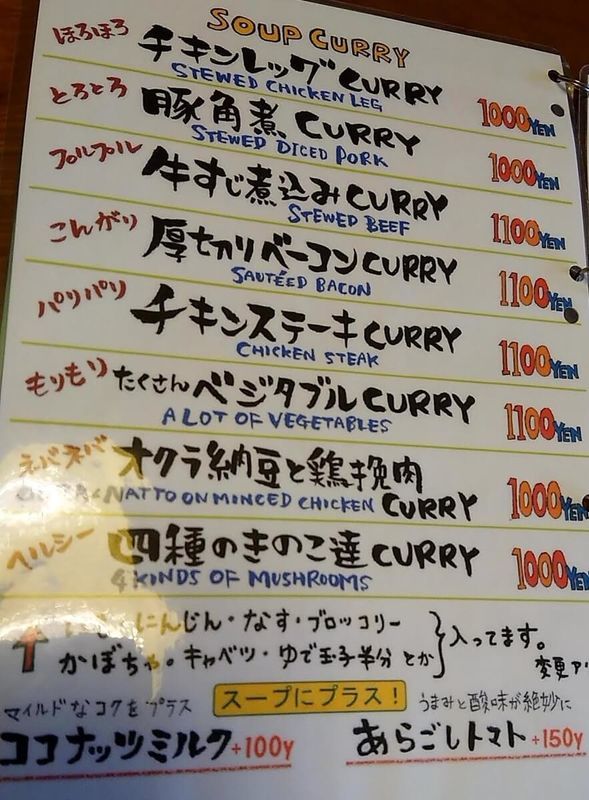 SOUP CURRY
ほろほろ チキンレッグCURRY
STEWED CHICKEN LEG
1000YEN
とろとろ 豚角煮 CURRY
STEWED DICED PORK
1000YEN
プルプル 牛すじ煮込みCURRY
STEWED BEEF
1100YEN
こんがり 厚切りベーコンCURRY
SAUTÉED BACON
1100YEN
パリパリ チキンステーキCURRY
CHICKEN STEAK
1100YEN
もりもり たくさんベジタブルCURRY
A LOT OF VEGETABLES
1100YEN
ネバネバ オクラ納豆と鶏挽肉
NATTO ON MINCED CHICKEN CURRY
1000YEN
ヘルシー 四種のきのこ達CURRY
4 KINDS OF MUSHROOMS
1000YEN
にんじん・なす・ブロッコリー
かぼちゃ。キャベツ・ゆで玉子半分 とか
入ってます。
変更
スープにプラス!
マイルドなコクをプラス
ココナッツミルク+100y
うまみと酸味が絶妙に
あらごしトマト+150y